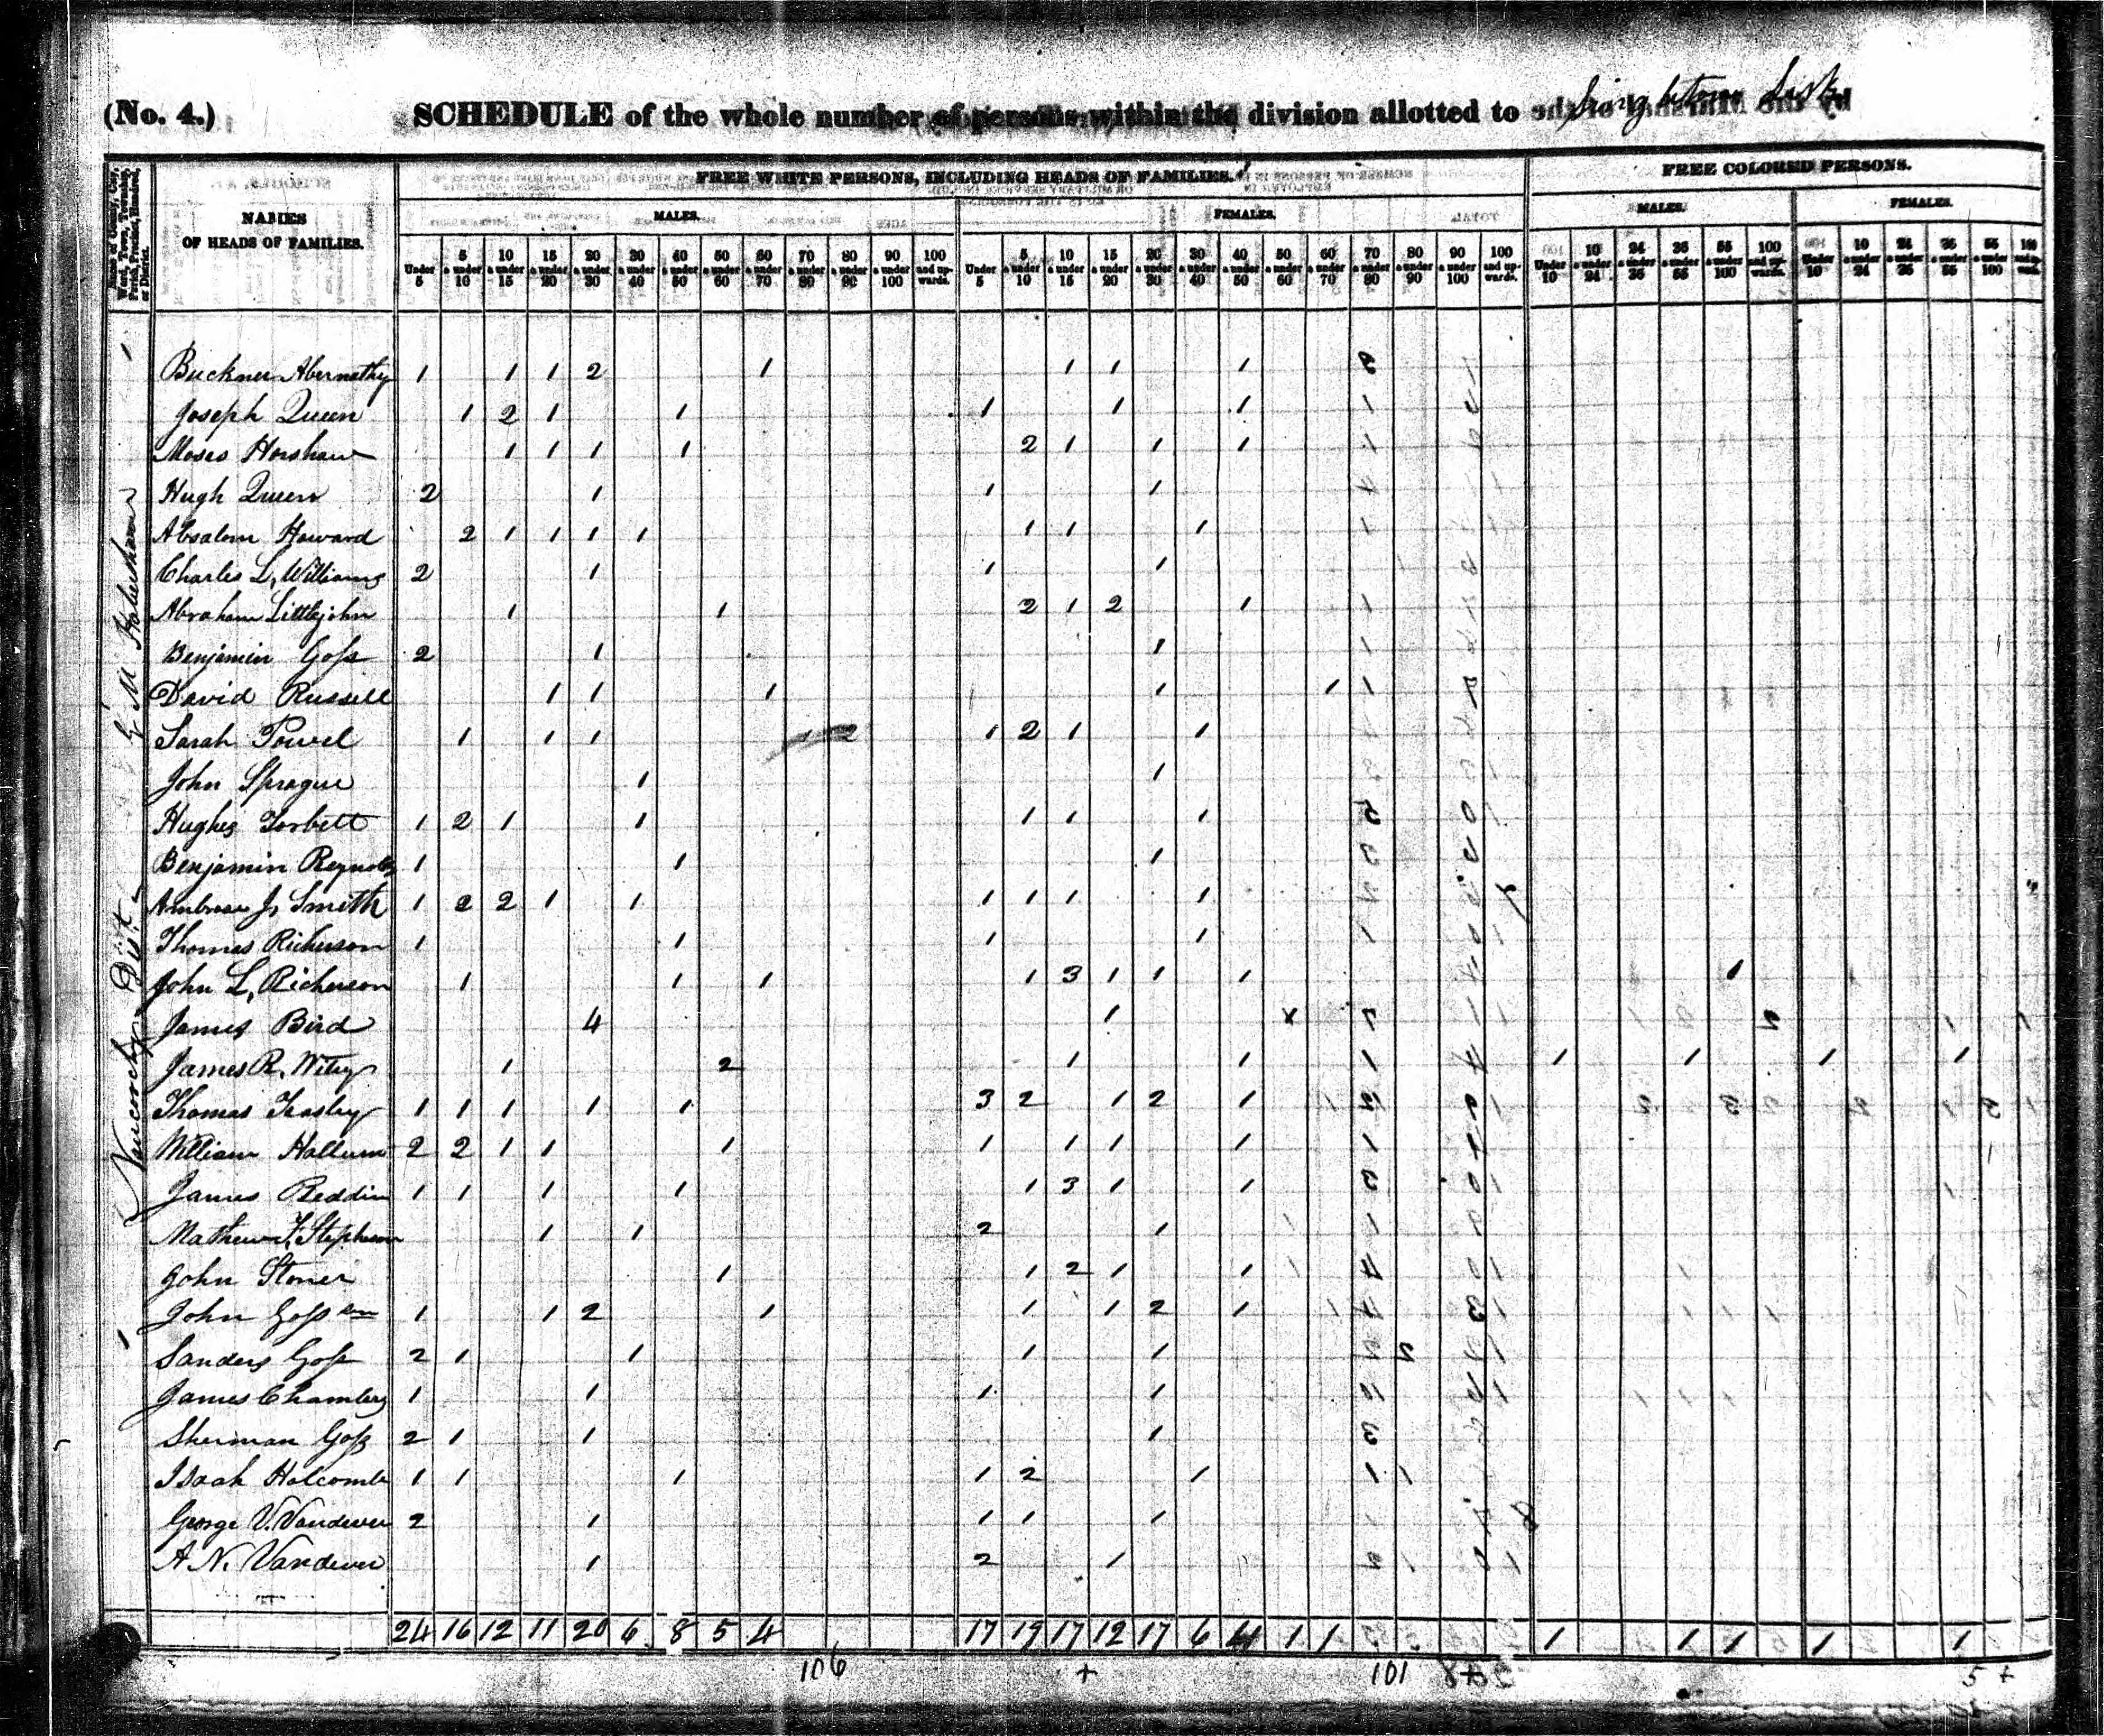 (No. 4.) SCHEDULE of the whole number of persons within the division allotted to
Name of County, City, Ward, Town, Township, Parish, Precinct, Hundred, or District.
NAMES
OF HEADS OF FAMILIES.
FREE WHITE PERSONS, INCLUDING HEADS OF FAMILIES.
FREE COLORED PERSONS.
MALES. FEMALES. MALES. FEMALES.
Under 5 | 5 & under 10 | 10 & under 15 | 15 & under 20 | 20 & under 30 | 30 & under 40 | 40 & under 50 | 50 & under 60 | 60 & under 70 | 70 & under 80 | 80 & under 90 | 90 & under 100 | 100 and upwards. | Under 5 | 5 & under 10 | 10 & under 15 | 15 & under 20 | 20 & under 30 | 30 & under 40 | 40 & under 50 | 50 & under 60 | 60 & under 70 | 70 & under 80 | 80 & under 90 | 90 & under 100 | 100 and upwards. | Under 10 | 10 & under 24 | 24 & under 36 | 36 & under 55 | 55 & under 100 | 100 and upwards. | Under 10 | 10 & under 24 | 24 & under 36 | 36 & under 55 | 55 & under 100 | 100 and upwards.
Buckner Abernathy 1 1 1 2 1 1 1 1
Joseph Queen 1 2 1 1 1 1 1
Moses Horshaw 1 1 1 1 2 1 1 1
Hugh Queen 2 1 1 1
Absalom Howard 2 1 1 1 1 1 1 1
Charles L. Williams 2 1 1 1
Abraham Littlejohn 1 1 2 1 2 1
Benjamin Goss 2 1 1
David Russell 1 1 1 1 1
Sarah Powel 1 1 1 1 2 1 1
John Sprague 1 1
Hughes Torbett 1 2 1 1 1 1 1
Benjamin Reynolds 1 1 1
Ambrose J. Smith 1 2 2 1 1 1 1 1 1
Thomas Richerson 1 1 1 1
John L. Richerson 1 1 1 1 3 1 1 1 1
James Bird 4 1
James R. 1 2 1 1 1 1 1 1
Thomas 1 1 1 1 1 3 2 1 2 1
William Hallum 2 2 1 1 1 1 1 1 1
James Reddin 1 1 1 1 1 3 1 1
Mathew F. Stephens 1 1 2 1
John Stoner 1 1 2 1 1
John Goss 1 1 2 1 1 1 2 1
Sanders Goss 2 1 1 1 1
James Chambers 1 1 1 1
Sherman Goss 2 1 1 1
Isaah Holcomb 1 1 1 1 2 1
George V. Vandever 2 1 1 1 1
A N. Vandever 1 2 1
24 16 12 11 20 6 8 5 4 17 19 17 12 17 6 1 1 1 1 1 1 1
106 + 101 5 +